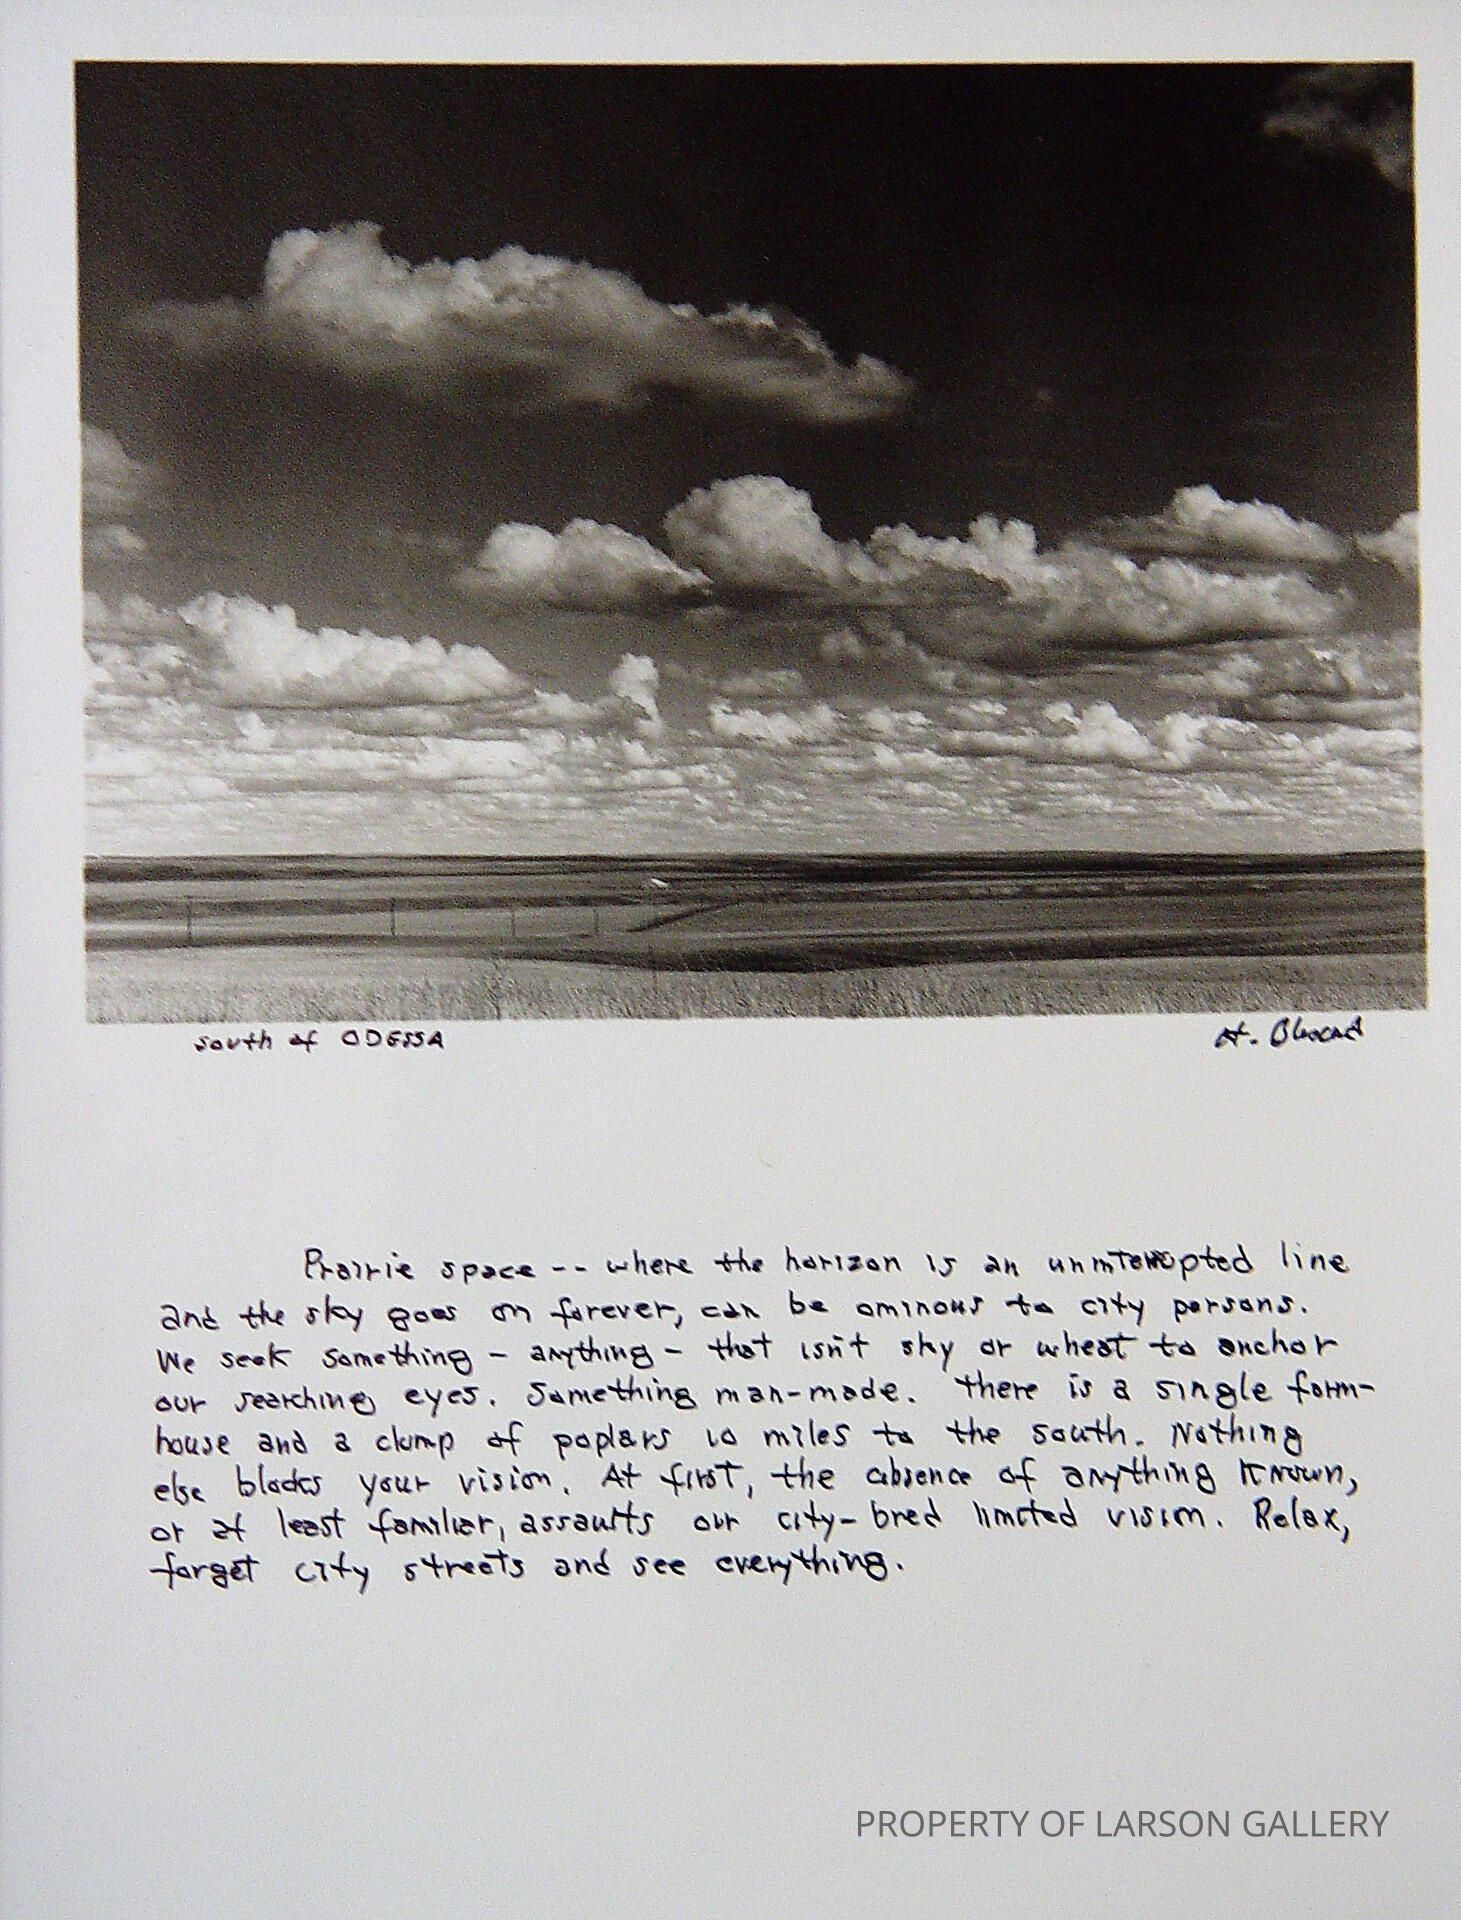 south of ODESSA
H.
Prairie space -- where the horizon is an uninterrupted line
and the sky goes on forever, can be ominous to city persons.
We seek something - anything - that isn't sky or wheat to anchor
our searching eyes. Something man-made. There is a single farm-
house and a clump of poplars 10 miles to the south. Nothing
else blocks your vision. At first, the absence of anything known,
or at least familiar, assaults our city-bred limited vision. Relax,
forget city streets and see everything.
PROPERTY OF LARSON GALLERY